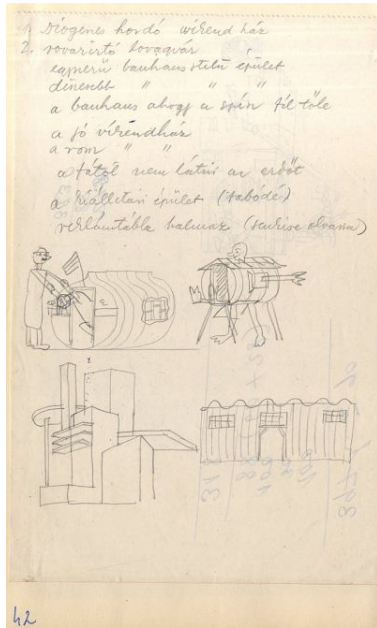 1. Diogenes hordó vikend ház
2. rovarirtó lovagvár
egyszerű bauhaus stílű épület
" " "
a bauhaus ahogy a spán fél tőle
a jó vikendház
a rom " "
a fától nem látni az erdőt
a kiállítási épület (tabódé)
reklámtábla halmaz (senkise olvassa)
42